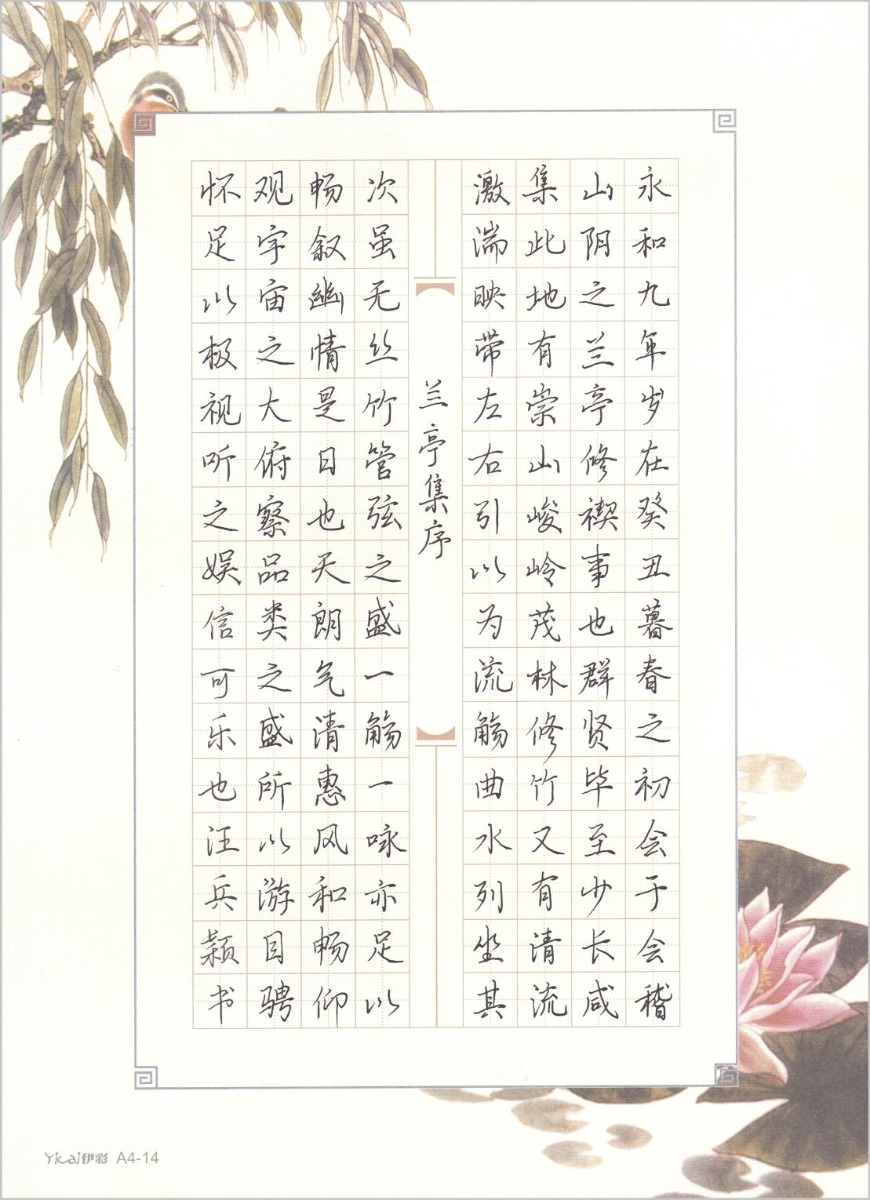 永和九年岁在癸丑暮春之初会于会稽
山阴之兰亭修禊事也群贤毕至少长咸
集此地有崇山峻岭茂林修竹又有清流
激湍映带左右引以为流觞曲水列坐其
兰亭集序
次虽无丝竹管弦之盛一觞一咏亦足以
畅叙幽情是日也天朗气清惠风和畅仰
观宇宙之大俯察品类之盛所以游目骋
怀足以极视听之娱信可乐也汪兵颖书
Yicai伊彩 A4-14